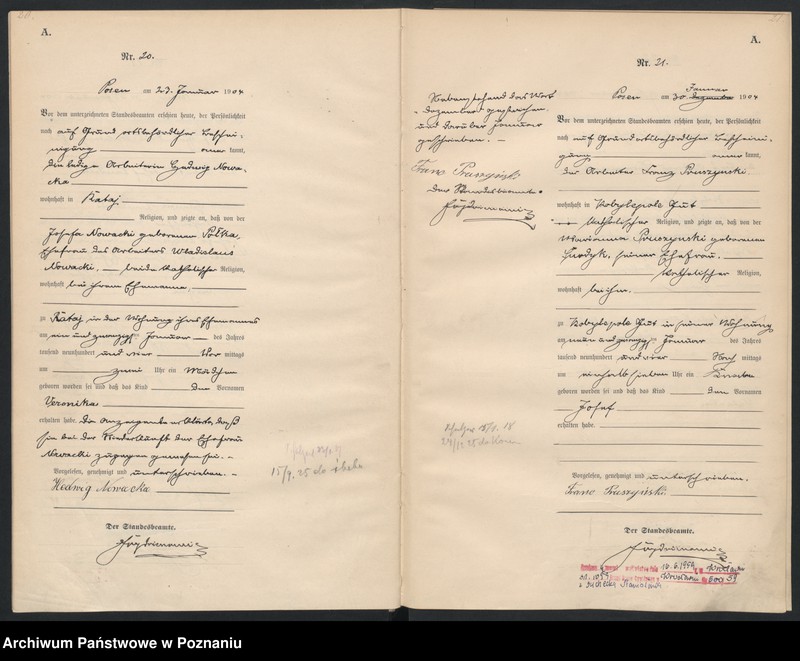 A.
Nr. 20.
Posen am 23. Januar 1904
Vor dem unterzeichneten Standesbeamten erschien heute, der Persönlichkeit
nach auf Grund ortsbehördlicher Beschei-
nigung kannt,
die ledige Arbeiterin Hedwig Nowa-
cka
wohnhaft in Rataj
Religion, und zeigte an, daß von der
Josefa Nowacki geborenen
Ehefrau des Arbeiters Wladislaus
Nowacki, beide katholischer Religion,
wohnhaft bei ihrem Ehemanne
zu Rataj in der Wohnung ihres Ehemannes
am ein und zwanzigsten Januar des Jahres
tausend neunhundert und vier Vor mittags
um zwei Uhr ein Mädchen
geboren worden sei und daß das Kind den Vornamen
Veronika
erhalten habe. Die Anzeigende erklärte, daß
sie bei der Niederkunft der Ehefrau
Nowacki zugegen gewesen sei. –
Vorgelesen, genehmigt und unterschrieben. –
Hedwig Nowacka
Der Standesbeamte.
15/9. 25 do
A.
Nr. 21.
Nebenstehend das Wort
Dezember gestrichen
und darüber Januar
geschrieben. –
Franc Pruszyński
Der Standesbeamte.
Januar
Posen am 30 Dezember 1904
Vor dem unterzeichneten Standesbeamten erschien heute, der Persönlichkeit
nach auf Grund ortsbehördlicher Bescheini-
gung kannt,
der Arbeiter Franz Pruszynski
wohnhaft in Kobylepole Gut
katholischer Religion, und zeigte an, daß von der
Marianna Pruszynski geborenen
seiner Ehefrau.
katholischer Religion,
wohnhaft bei ihm.
zu Kobylepole Gut in seiner Wohnung
am neun und zwanzigsten Januar des Jahres
tausend neunhundert und vier Nach mittags
um einhalb sieben Uhr ein Knabe
geboren worden sei und daß das Kind den Vornamen
Josef
erhalten habe.
Vorgelesen, genehmigt und unterschrieben.
Franc Pruszyński
Der Standesbeamte.
10.6.1959 Wrocław
Wrocław 600 59
Stanisławą
Archiwum Państwowe w Poznaniu